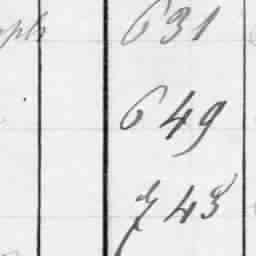 631
649
743